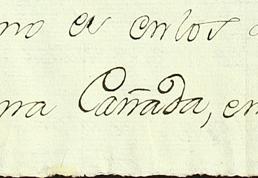 no es en los
rra Cañada, en